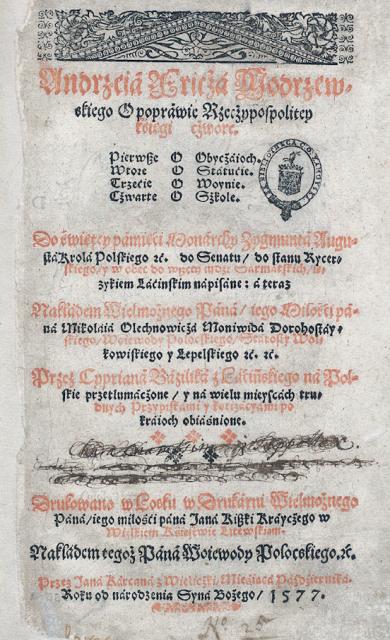 Andrzeiá Fricżá Modrzew-
skiego O popráwie Rzecżypospolitey
kśięgi cżwore.
Pierwsze O Obycżáioch.
Wtore O Státućie.
Trzećie O Woynie.
Cżwarte O Szkole.
Do świętey pámięći Monárchy Zygmuntá Augu-
stá Krolá Polskiego ꝛc. do Senatu / do stanu Rycer-
skiego / y w obec do wszech ludzi Sármáckich / ię-
zykiem Láćinskim nápisáne: á teraz
Nakłádem Wielmożnego Páná / iego Miłośći pá-
ná Mikołáiá Olechnowiczá Moniwidá Dorohostáy-
skiego / Woiewody Połockiego / Stárosty Woł-
kowiskiego y Lepelskiego ꝛc. ꝛc.
Przez Cyprianá Bázyliká z Láćińskiego ná Pol-
skie przetłumácżone / y ná wielu mieyscách tru-
dnych Przypiskámi y kotácyámi po
kráioch obiáśnione.
Drukowano w Łosku w Drukárni Wielmożnego
Páná / iego miłośći páná Janá Kiszki Kráycżego w
Wielkim Kśięstwie Litewskim.
Nakłádem tegoż Páná Woiewody Połockiego. ꝛc.
Przez Janá Kárcaná z Wielicżki, Mieśiącá Páźdźierniká.
Roku od národzenia Syná Bożego / 1577.
No 252